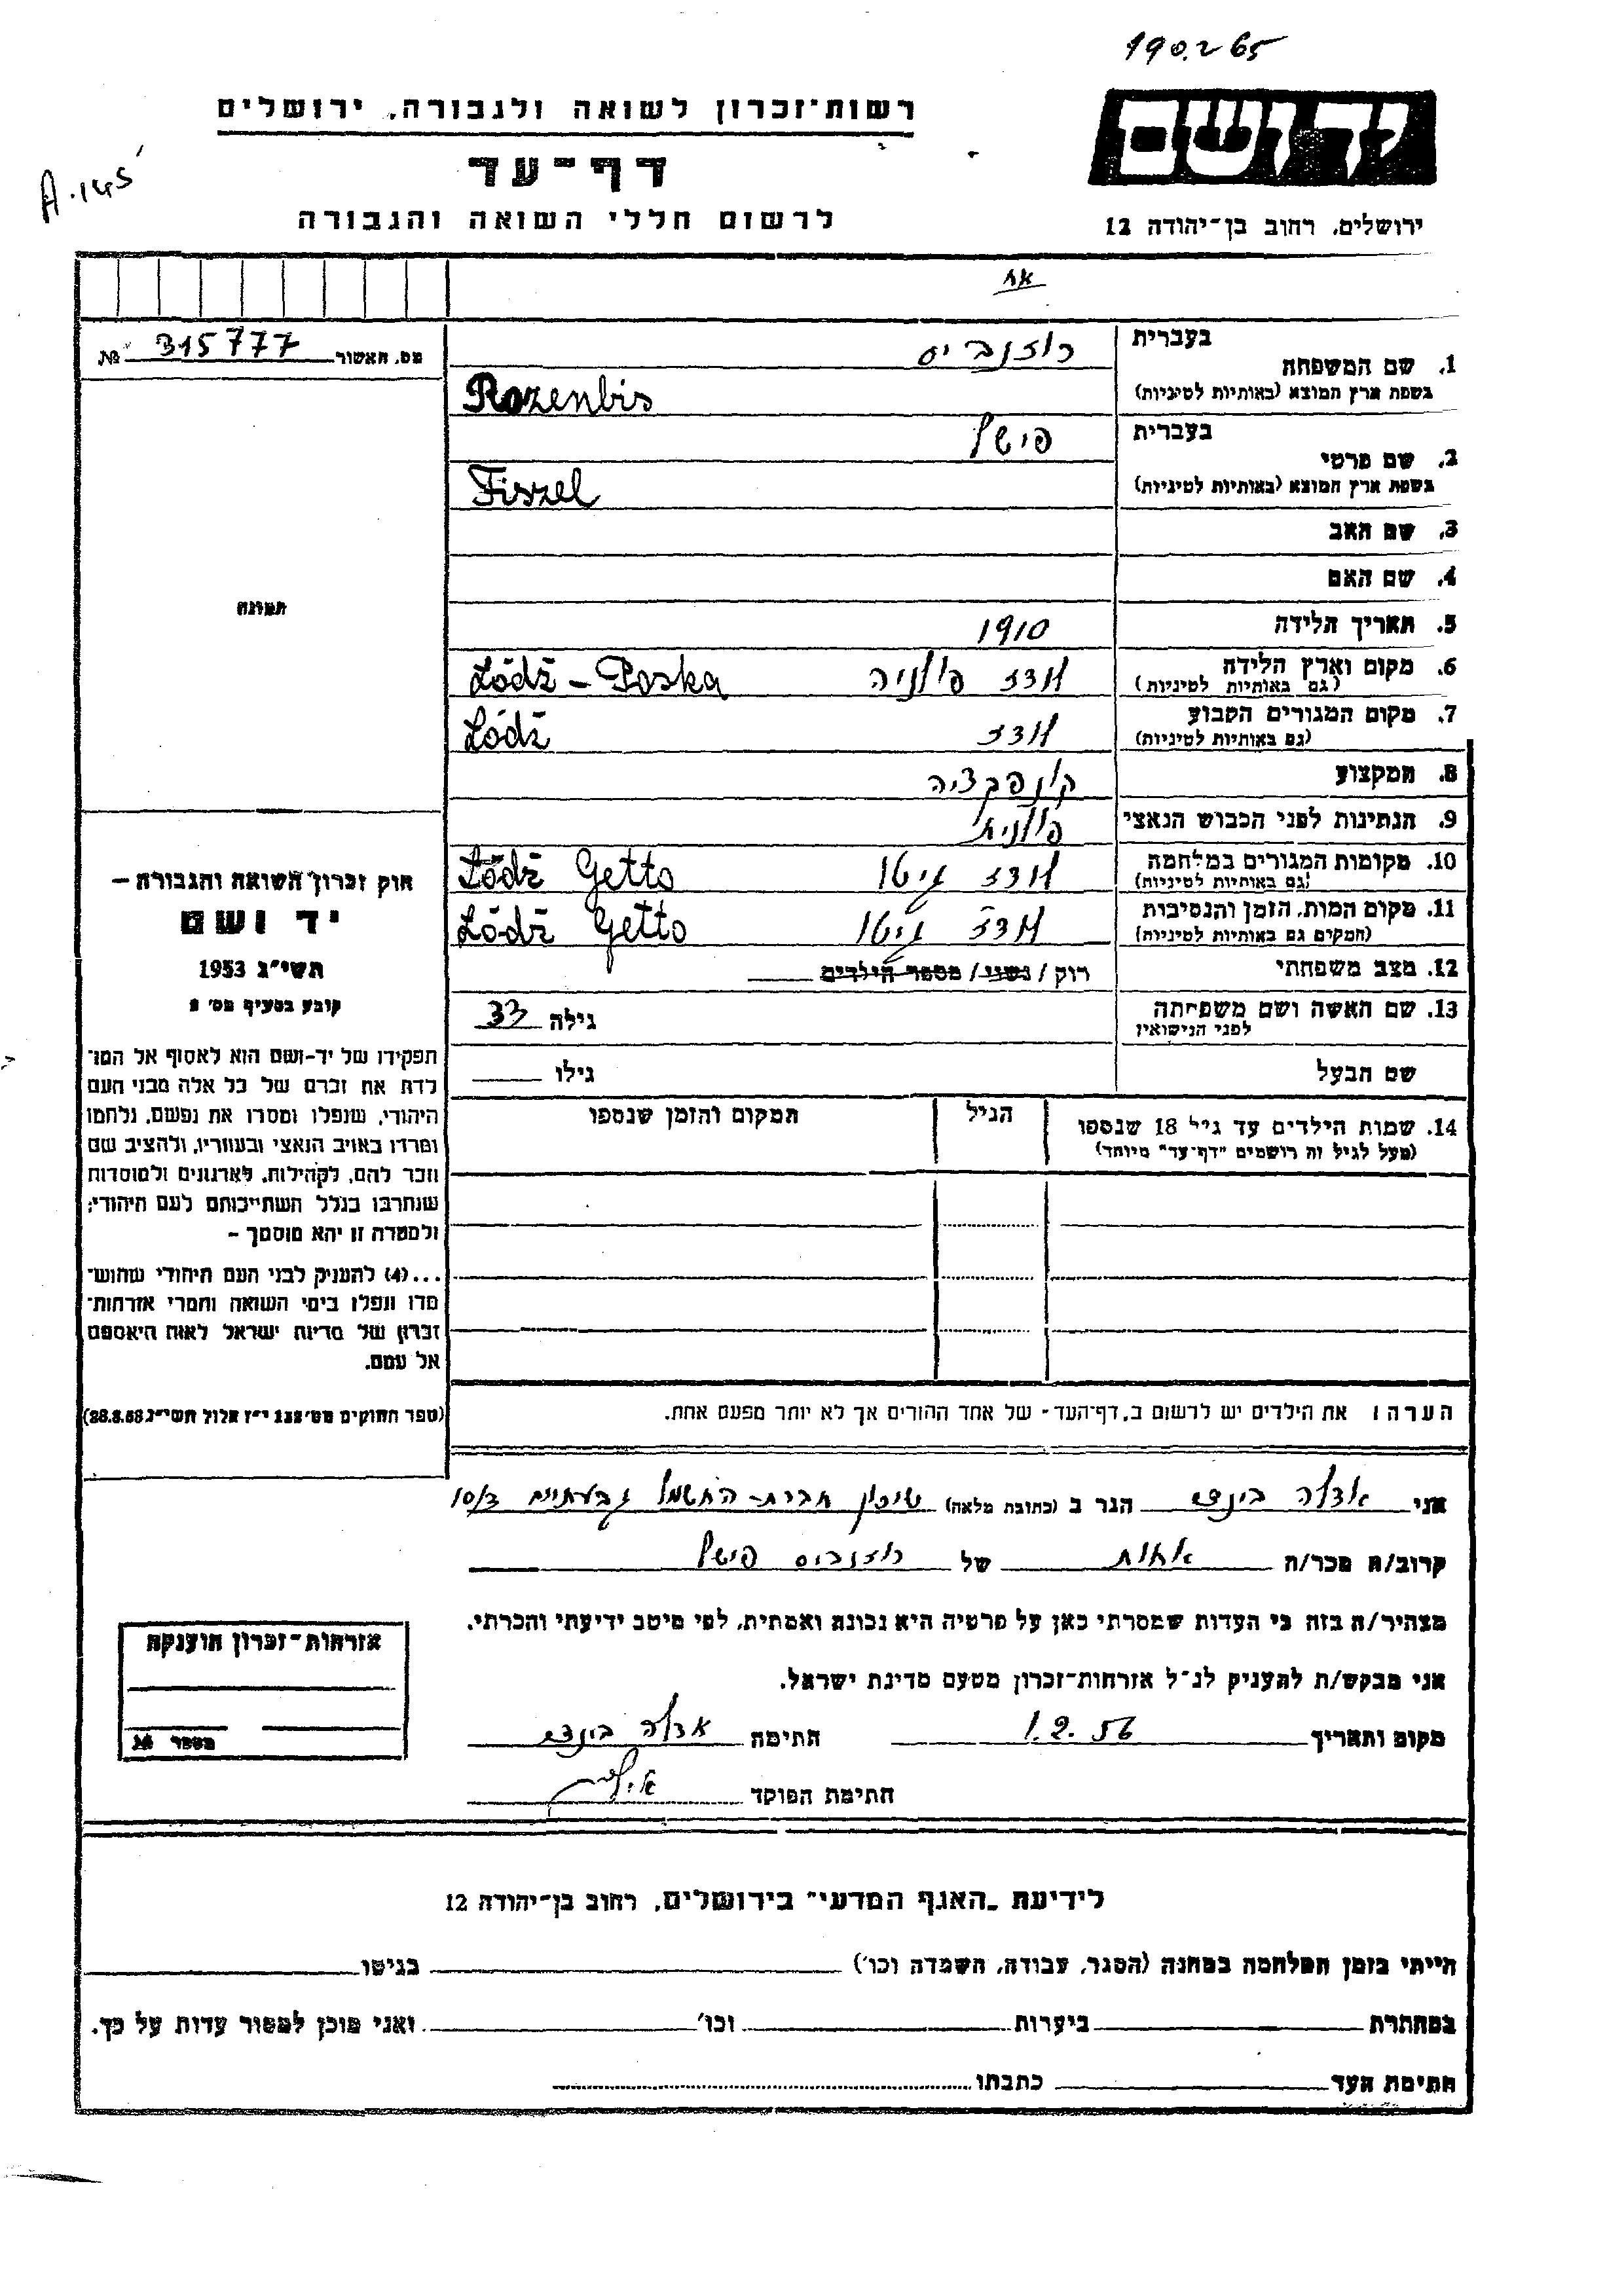 190265
יד ושם
רשות־זכרון לשואה ולגבורה, ירושלים
A.145
דף־עד
לרשום חללי השואה והגבורה
ירושלים, רחוב בן־יהודה 12
מס. האשור 315777 №
בעברית רוזנביס
1. שם המשפחה
בשפת ארץ המוצא (באותיות לטיניות) Rozenbis
בעברית פישל
2. שם פרטי
בשפת ארץ המוצא (באותיות לטיניות) Fiszel
3. שם האב
4. שם האם
תמונה
5. תאריך הלידה 1910
6. מקום וארץ הלידה לודז פולניה Łódź – Poska
(גם באותיות לטיניות)
7. מקום המגורים הקבוע לודז Łódź
(גם באותיות לטיניות)
8. המקצוע קונפקציה
9. הנתינות לפני הכבוש הנאצי פולנית
10. מקומות המגורים במלחמה לודז גיטו Łódź Getto
(גם באותיות לטיניות)
11. מקום המות, הזמן והנסיבות לודז גיטו Łódź Getto
(המקום גם באותיות לטיניות)
12. מצב משפחתי רוק / נשוי / מספר הילדים
13. שם האשה ושם משפחתה גילה 33
לפני הנישואין
שם הבעל גילו
14. שמות הילדים עד גיל 18 שנספו הגיל המקום והזמן שנספו
(מעל לגיל זה רושמים "דף־עד" מיוחד)
חוק זכרון השואה והגבורה –
יד ושם
תשי"ג 1953
קובע בסעיף מס' 2
תפקידו של יד-ושם הוא לאסוף אל המו־
לדת את זכרם של כל אלה מבני העם
היהודי, שנפלו ומסרו את נפשם, נלחמו
ומרדו באויב הנאצי ובעוזריו, ולהציב שם
וזכר להם, לקהילות, לארגונים ולמוסדות
שנחרבו בגלל השתייכותם לעם היהודי;
ולמטרה זו יהא מוסמך –
...(4) להעניק לבני העם היהודי שהוש־
מדו ונפלו בימי השואה והמרי אזרחות־
זכרון של מדינת ישראל לאות היאספם
אל עמם.
(ספר החוקים מס' 132 י"ז אלול תשי"ג 28.8.53)
הערה: את הילדים יש לרשום ב"דף־העד" של אחד ההורים אך לא יותר מפעם אחת.
אני אדלה בינדר הגר ב (כתובת מלאה) שיכון חברת־החשמל גבעתיים 10/3
קרוב/ה מכר/ה אחות של רוזנביס פישל
מצהיר/ה בזה כי העדות שמסרתי כאן על פרטיה היא נכונה ואמתית, לפי מיטב ידיעתי והכרתי.
אני מבקש/ת להעניק לנ"ל אזרחות־זכרון מטעם מדינת ישראל.
מקום ותאריך 1.2.56 חתימה אדלה בינדר
חתימת הפוקד
אזרחות־זכרון הוענקה
מספר №
לידיעת "האגף המדעי" בירושלים, רחוב בן־יהודה 12
הייתי בזמן המלחמה במחנה (הסגר, עבודה, השמדה וכו') בגיטו
במחתרת ביערות וכו' ואני מוכן למסור עדות על כך.
חתימת העד כתבתו